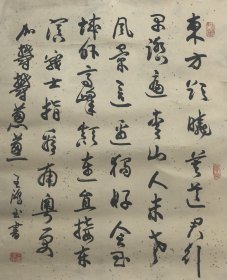 東方欲曉莫道君行
早踏遍青山人未老
風景這邊獨好會昌
城外高峰顛連直接東
溟戰士指看南粵更
加鬱鬱葱葱
王 書